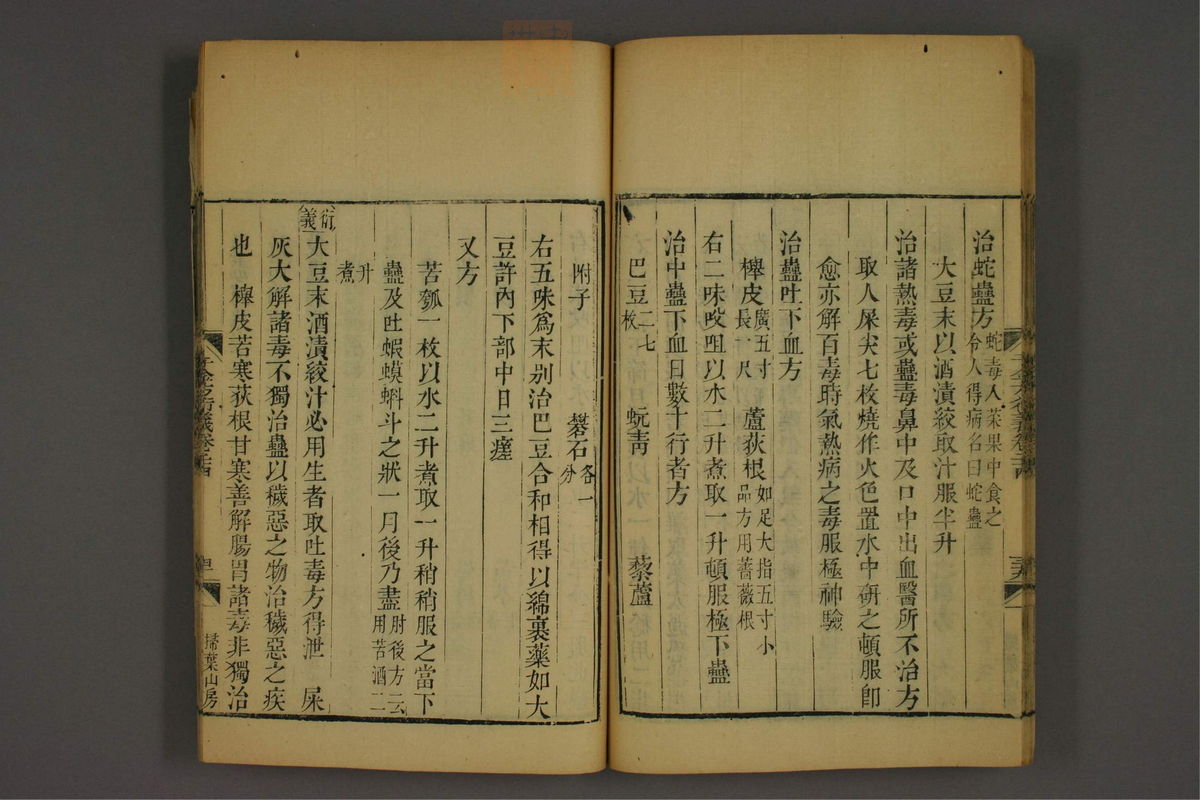 治蛇蠱方蛇毒入菜果中食之令人得病名曰蛇蠱
大豆末以酒漬絞取汁服半升
治諸熱毒或蠱毒鼻中及口中出血醫所不治方
取人屎尖七枚燒作火色置水中硏之頓服卽
愈亦解百毒時氣熱病之毒服極神驗
治蠱吐下血方
欅皮廣五寸長一尺 蘆荻根如足大指五寸小品方用薔薇根
右二味㕮咀以水二升煮取一升頓服極下蠱
治中蠱下血日數十行者方
巴豆二七枚 蚖靑 藜蘆
附子 礜石各一分
右五味爲末別治巴豆合和相得以綿裹藥如大
豆許內下部中日三瘥
又方
苦瓠一枚以水二升煮取一升稍稍服之當下
蠱及吐蝦蟆蝌斗之狀一月後乃盡肘後方云用苦酒二
升煮
衍義大豆末酒漬絞汁必用生者取吐毒方得泄 屎
灰大解諸毒不獨治蠱以穢惡之物治穢惡之疾
也 欅皮苦寒荻根甘寒善解腸胃諸毒非獨治
掃葉山房